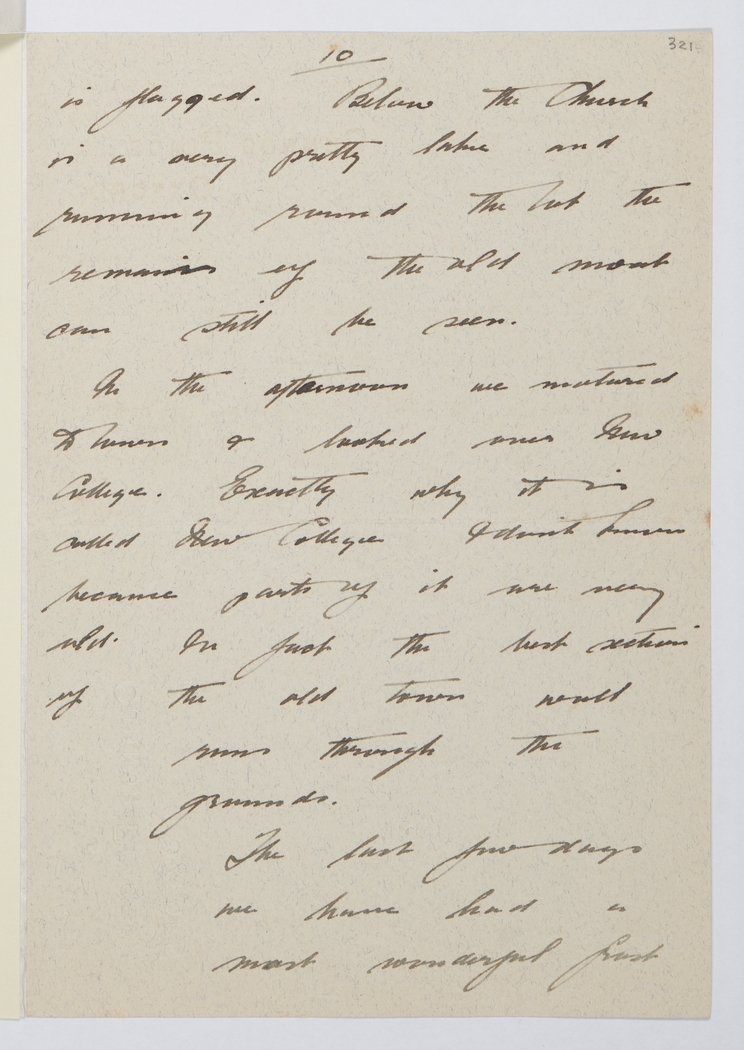 10
321
is flagged. Below the Church
is a very pretty lake and
running round the lot the
remains of the old moat
can still be seen.
In the afternoon we motored
to town & looked over New
College. Exactly why it is
called New College I don't know
because parts of it are very
old. In fact the best section
of the old town wall
runs through the
grounds.
The last few days
we have had a
most wonderful frost